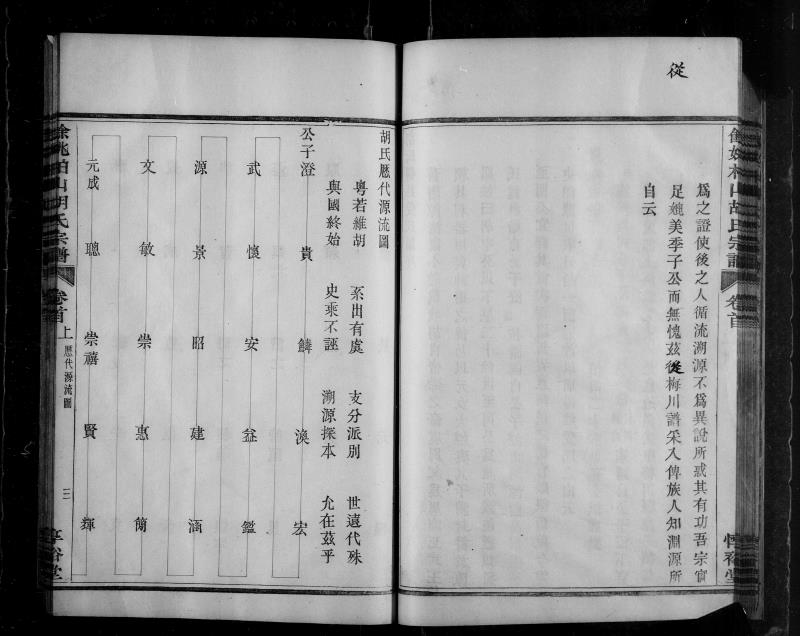 從
餘姚柏山胡氏宗譜 卷首
爲之證使後之人循流溯源不爲異說所惑其有功吾宗實
足媲美季子公而無愧茲從梅川譜采入俾族人知淵源所
自云
胡氏歷代源流圖
粵若維胡 系出有虞 支分派別 世遠代殊
與國終始 史乘不誣 溯源探本 允在茲乎
公子澄 貴 鱗 渙 宏
武 懷 安 益 鑑
源 景 昭 建 涵
文 敏 崇 惠 簡
元成 聰 崇禧 賢 輝
餘姚柏山胡氏宗譜 卷首上 歷代源流圖 三